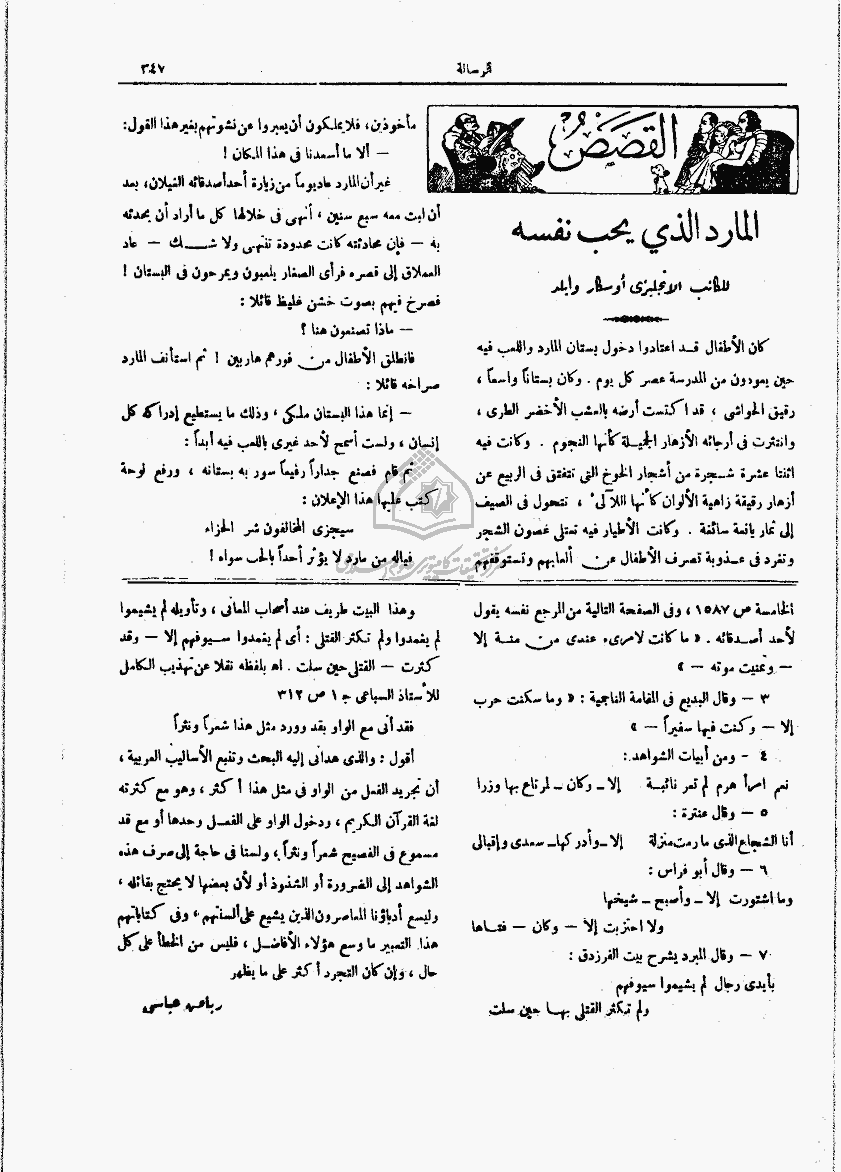 الرسالة
٣٤٧
القصص
المارد الذي يحب نفسه
للكاتب الانجليزى أوسكار وايلد
كان الأطفال قد اعتادوا دخول بستان المارد واللعب فيه
حين يعودون من المدرسة عصر كل يوم . وكان بستاناً واسعاً ،
رقيق الحواشى ، قد اكتست أرضه بالعشب الأخضر الطرى ،
وانتثرت فى أرجائه الأزهار الجميلة كأنها النجوم . وكانت فيه
اثنتا عشرة شجرة من أشجار الخوخ التى تتفتق فى الربيع عن
أزهار رقيقة زاهية الألوان كأنها اللآلئ ، تتحول فى الصيف
إلى ثمار يانعة سائغة . وكانت الأطيار فيه تعتلى غصون الشجر
وتغرد فى عذوبة تصرف الأطفال عن ألعابهم وتستوقفهم
مأخوذين، فلا يملكون أن يعبروا عن نشوتهم بغير هذا القول:
— ألا ما أسعدنا فى هذا المكان !
غير أن المارد عاد يوماً من زيارة أحد أصدقائه الغيلان، بعد
أن لبث معه سبع سنين ، أنهى فى خلالها كل ما أراد أن يحدثه
به — فإن محادثته كانت محدودة تنتهى ولا شك — عاد
العملاق إلى قصره فرأى الصغار يلعبون ويمرحون فى البستان !
فصرخ فيهم بصوت خشن غليظ قائلا :
— ماذا تصنعون هنا ؟
فانطلق الأطفال من فورهم هاربين ! ثم استأنف المارد
صراخه قائلا :
— إنما هذا البستان ملكى ، وذلك ما يستطيع إدراكه كل
إنسان ، ولست أسمح لأحد غيرى باللعب فيه أبداً :
ثم قام فصنع جداراً رفيعاً سور به بستانه ، ورفع لوحة
كتب عليها هذا الإعلان :
سيجزى المخالفون شر الجزاء
فياله من مارد لا يؤثر أحداً بالحب سواه !
الخامسة ص ١٥٨٧ ، وفى الصفحة التالية من المرجع نفسه يقول
لأحد أصدقائه . « ما كانت لامرىء عندى من منة إلا
— وتمنيت موته — »
٣ — وقال البديع فى المقامة الناجمية : « وما سكنت حرب
إلا — وكنت فيها سفيراً — »
٤ - ومن أبيات الشواهد :
نعم امرأ هرم لم تعر نائبة إلا ــ وكان ــ لمرتاع بها وزرا
٥ — وقال عنترة :
أنا الشجاع الذى ما رمت منزلة إلا ــ وأدركها ــ سعدى وإقبالى
٦ — وقال أبو فراس :
وما اشتورت إلا ــ وأصبح ــ شيخها
ولا احتربت إلا — وكان — فتاها
٧ — وقال المبرد يشرح بيت الفرزدق :
بأيدى رجال لم يشيموا سيوفهم
ولم تكثر القتلى بها حين سلت
وهذا البيت طريف عند أصحاب المعانى ، وتأويله لم يشيموا
لم يغمدوا ولم تكثر القتلى : أى لم يغمدوا سيوفهم إلا — وقد
كثرت — القتلى حين سلت . اه بلفظه نقلا عن تهذيب الكامل
للأستاذ السباعى ج ١ ص ٣١٢
فقد أتى مع الواو بقد وورد مثل هذا شعراً ونثراً
أقول : والذى هدانى إليه البحث وتتبع الأساليب العربية ،
أن تجريد الفعل من الواو فى مثل هذا أكثر ، وهو مع كثرته
لغة القرآن الكريم ، ودخول الواو على الفعل وحدها أو مع قد
مسموع فى الفصيح شعراً ونثراً ، ولسنا فى حاجة إلى صرف هذه
الشواهد إلى الضرورة أو الشذوذ أو لأن بعضها لا يحتج بقائله ،
وليسع أدباؤنا المعاصرون الذين يشيع على ألسنتهم ، وفى كتاباتهم
هذا التعبير ما وسع هؤلاء الأفاضل ، فليس من الخطأ على كل
حال ، وإن كان التجرد أكثر على ما يظهر
رياض عباسى